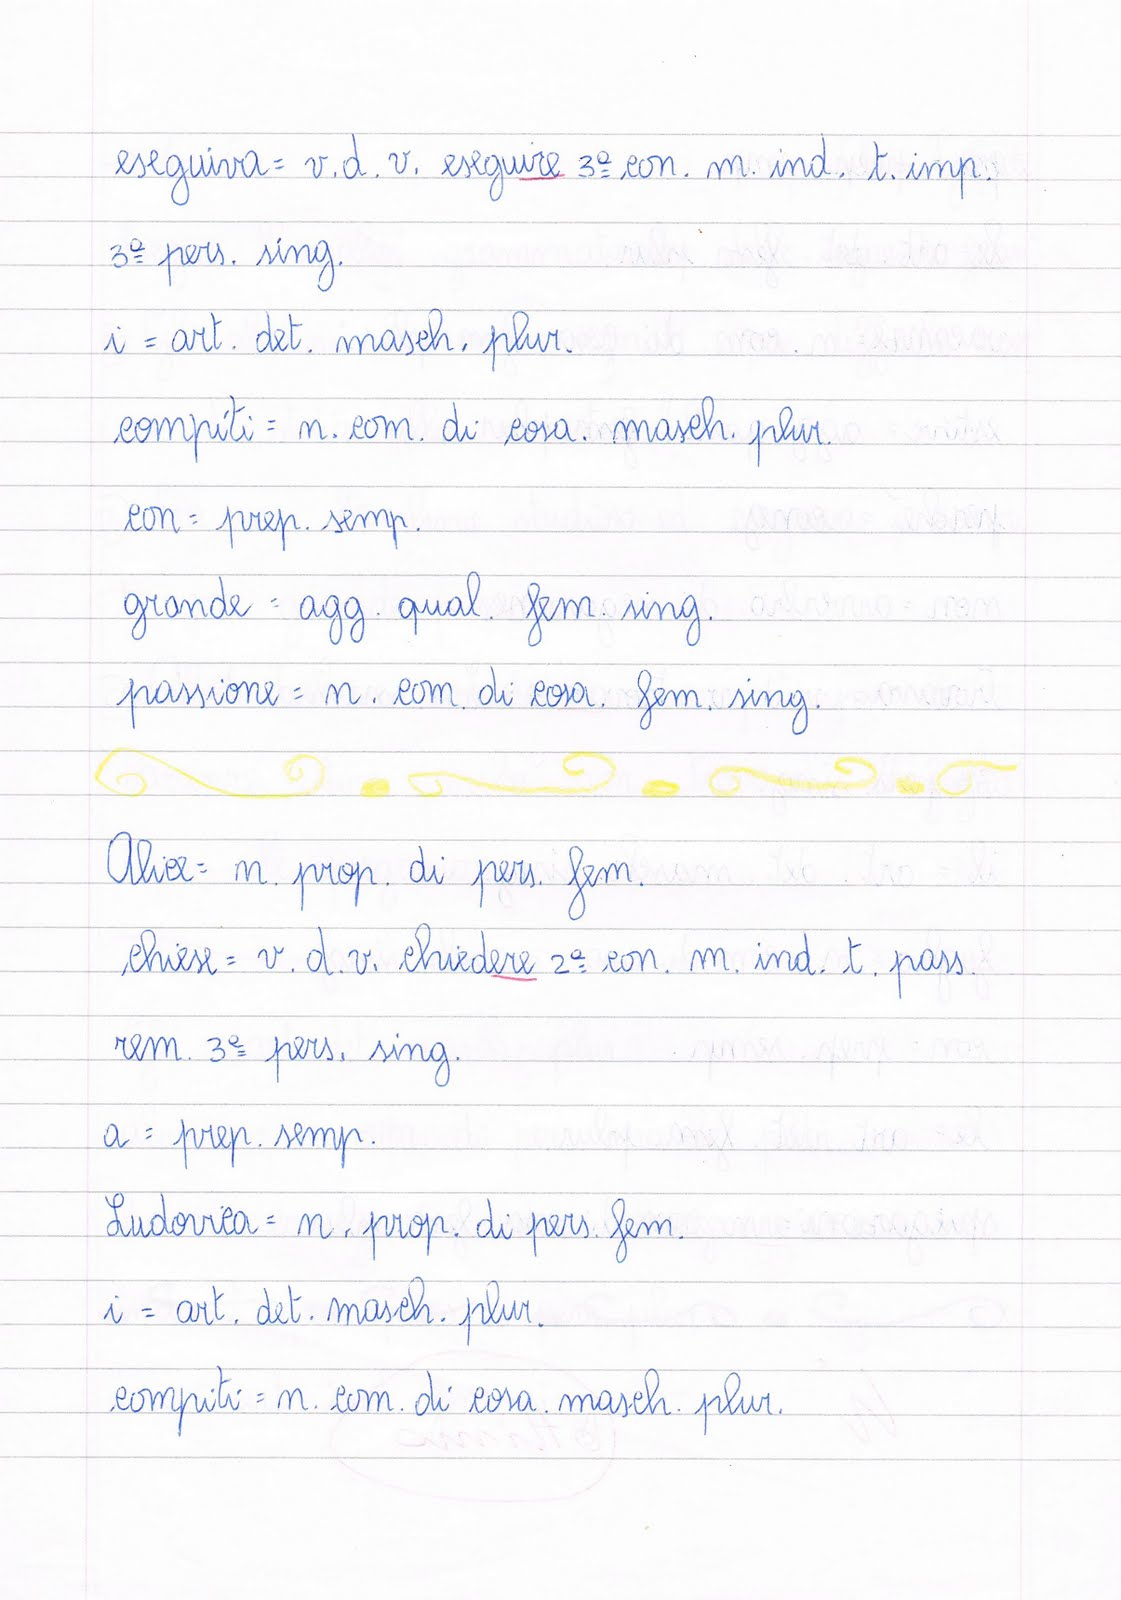 eseguiva = v. d. v. eseguire 3ª con. m. ind. t. imp.
3ª pers. sing.
i = art. det. masch. plur.
compiti = n. com. di cosa. masch. plur.
con = prep. semp.
grande = agg. qual. fem. sing.
passione = n. com. di cosa. fem. sing.
Alice = n. prop. di pers. fem.
chiese = v. d. v. chiedere 2ª con. m. ind. t. pass.
rem. 3ª pers. sing.
a = prep. semp.
Ludovica = n. prop. di pers. fem.
i = art. det. masch. plur.
compiti = n. com. di cosa. masch. plur.